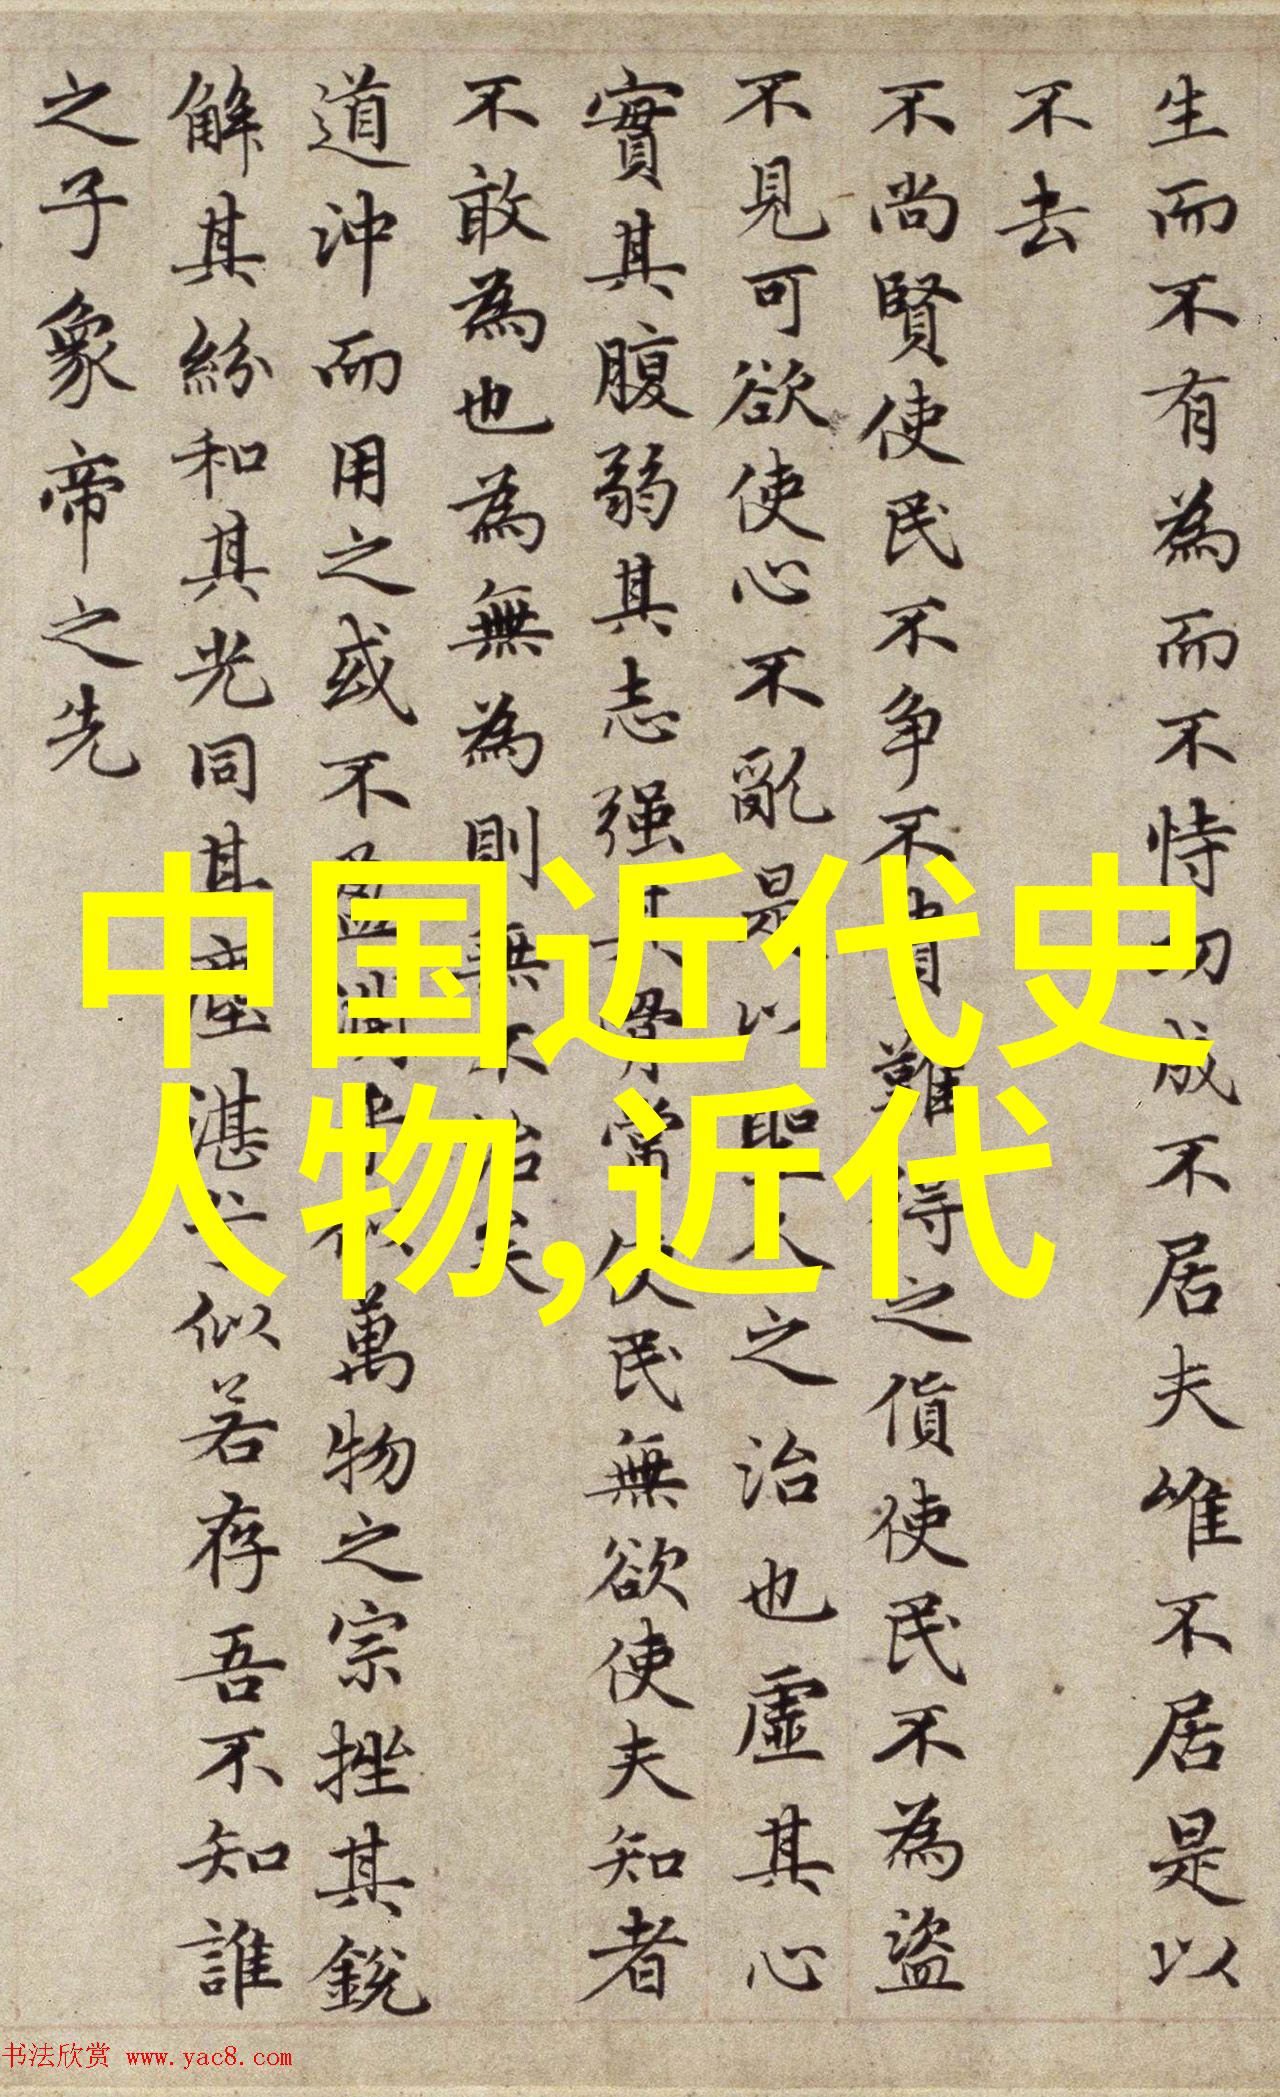 生而不有為而不恃功成不居夫唯不居是以
不去
不尚賢使民不争不貴難得之貨使民不為盜
不見可欲使心不亂是以聖人之治也虛其心
實其腹弱其志强其骨常使民無欲使夫知者
不敢為也為無為則無不治矣
道沖而用之或不盈淵乎似萬物之宗挫其銳
解其紛和其光同其塵湛兮似若存吾不知誰
之子象帝之先
中国近代史
人物,近代
书法欣赏 www.yac8.com